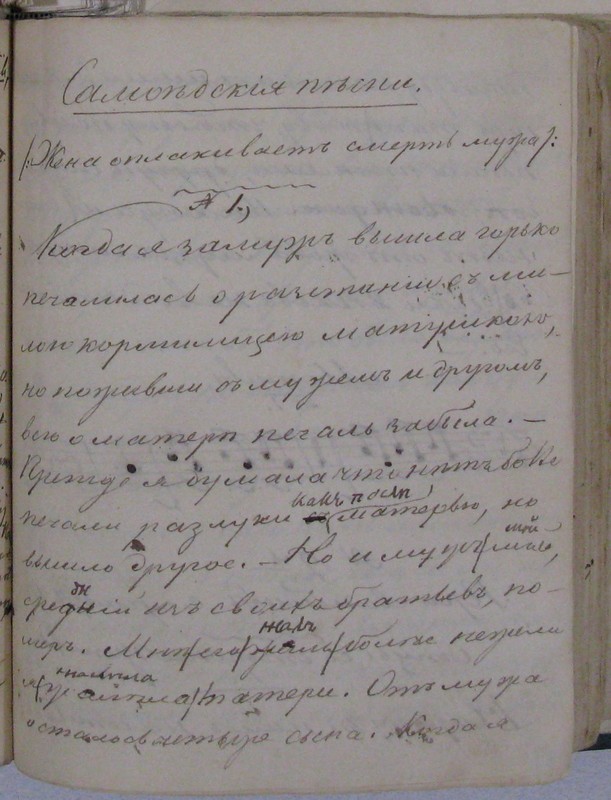 Самоѣдскія пѣсни.
(:Жена оплакиваетъ смерть мужа):
№ 1.,
Когда я замужъ вышла горько
печалилась о разстаніи съ ми-
лою кормилицею матушкою,
но поживши съ мужемъ и другомъ,
всю о матери печаль забыла. —
Прежде я думала что нѣтъ болѣе
какъ послѣ
печали разлуки съ матерью, но
мой
вышло другое. — Но и мужъ
средній изъ своихъ братьевъ, по-
жаль
меръ. Мнѣ его жаль болѣе нежели
жалѣла
я матери. Отъ мужа
осталось четыре сына. Когда я